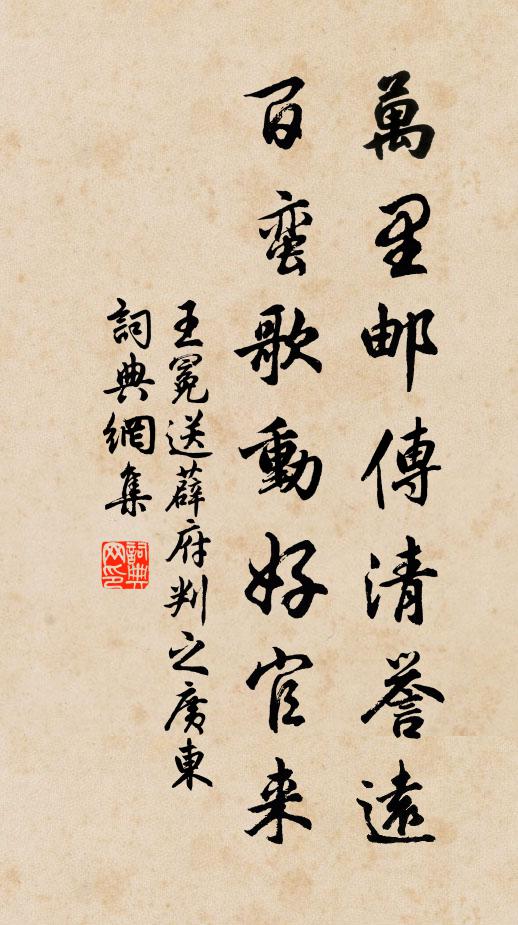 萬里邮傳清譽遠
百蛮歌動好官来
王冕送薛府判之廣東
詞典網集
詞典网印